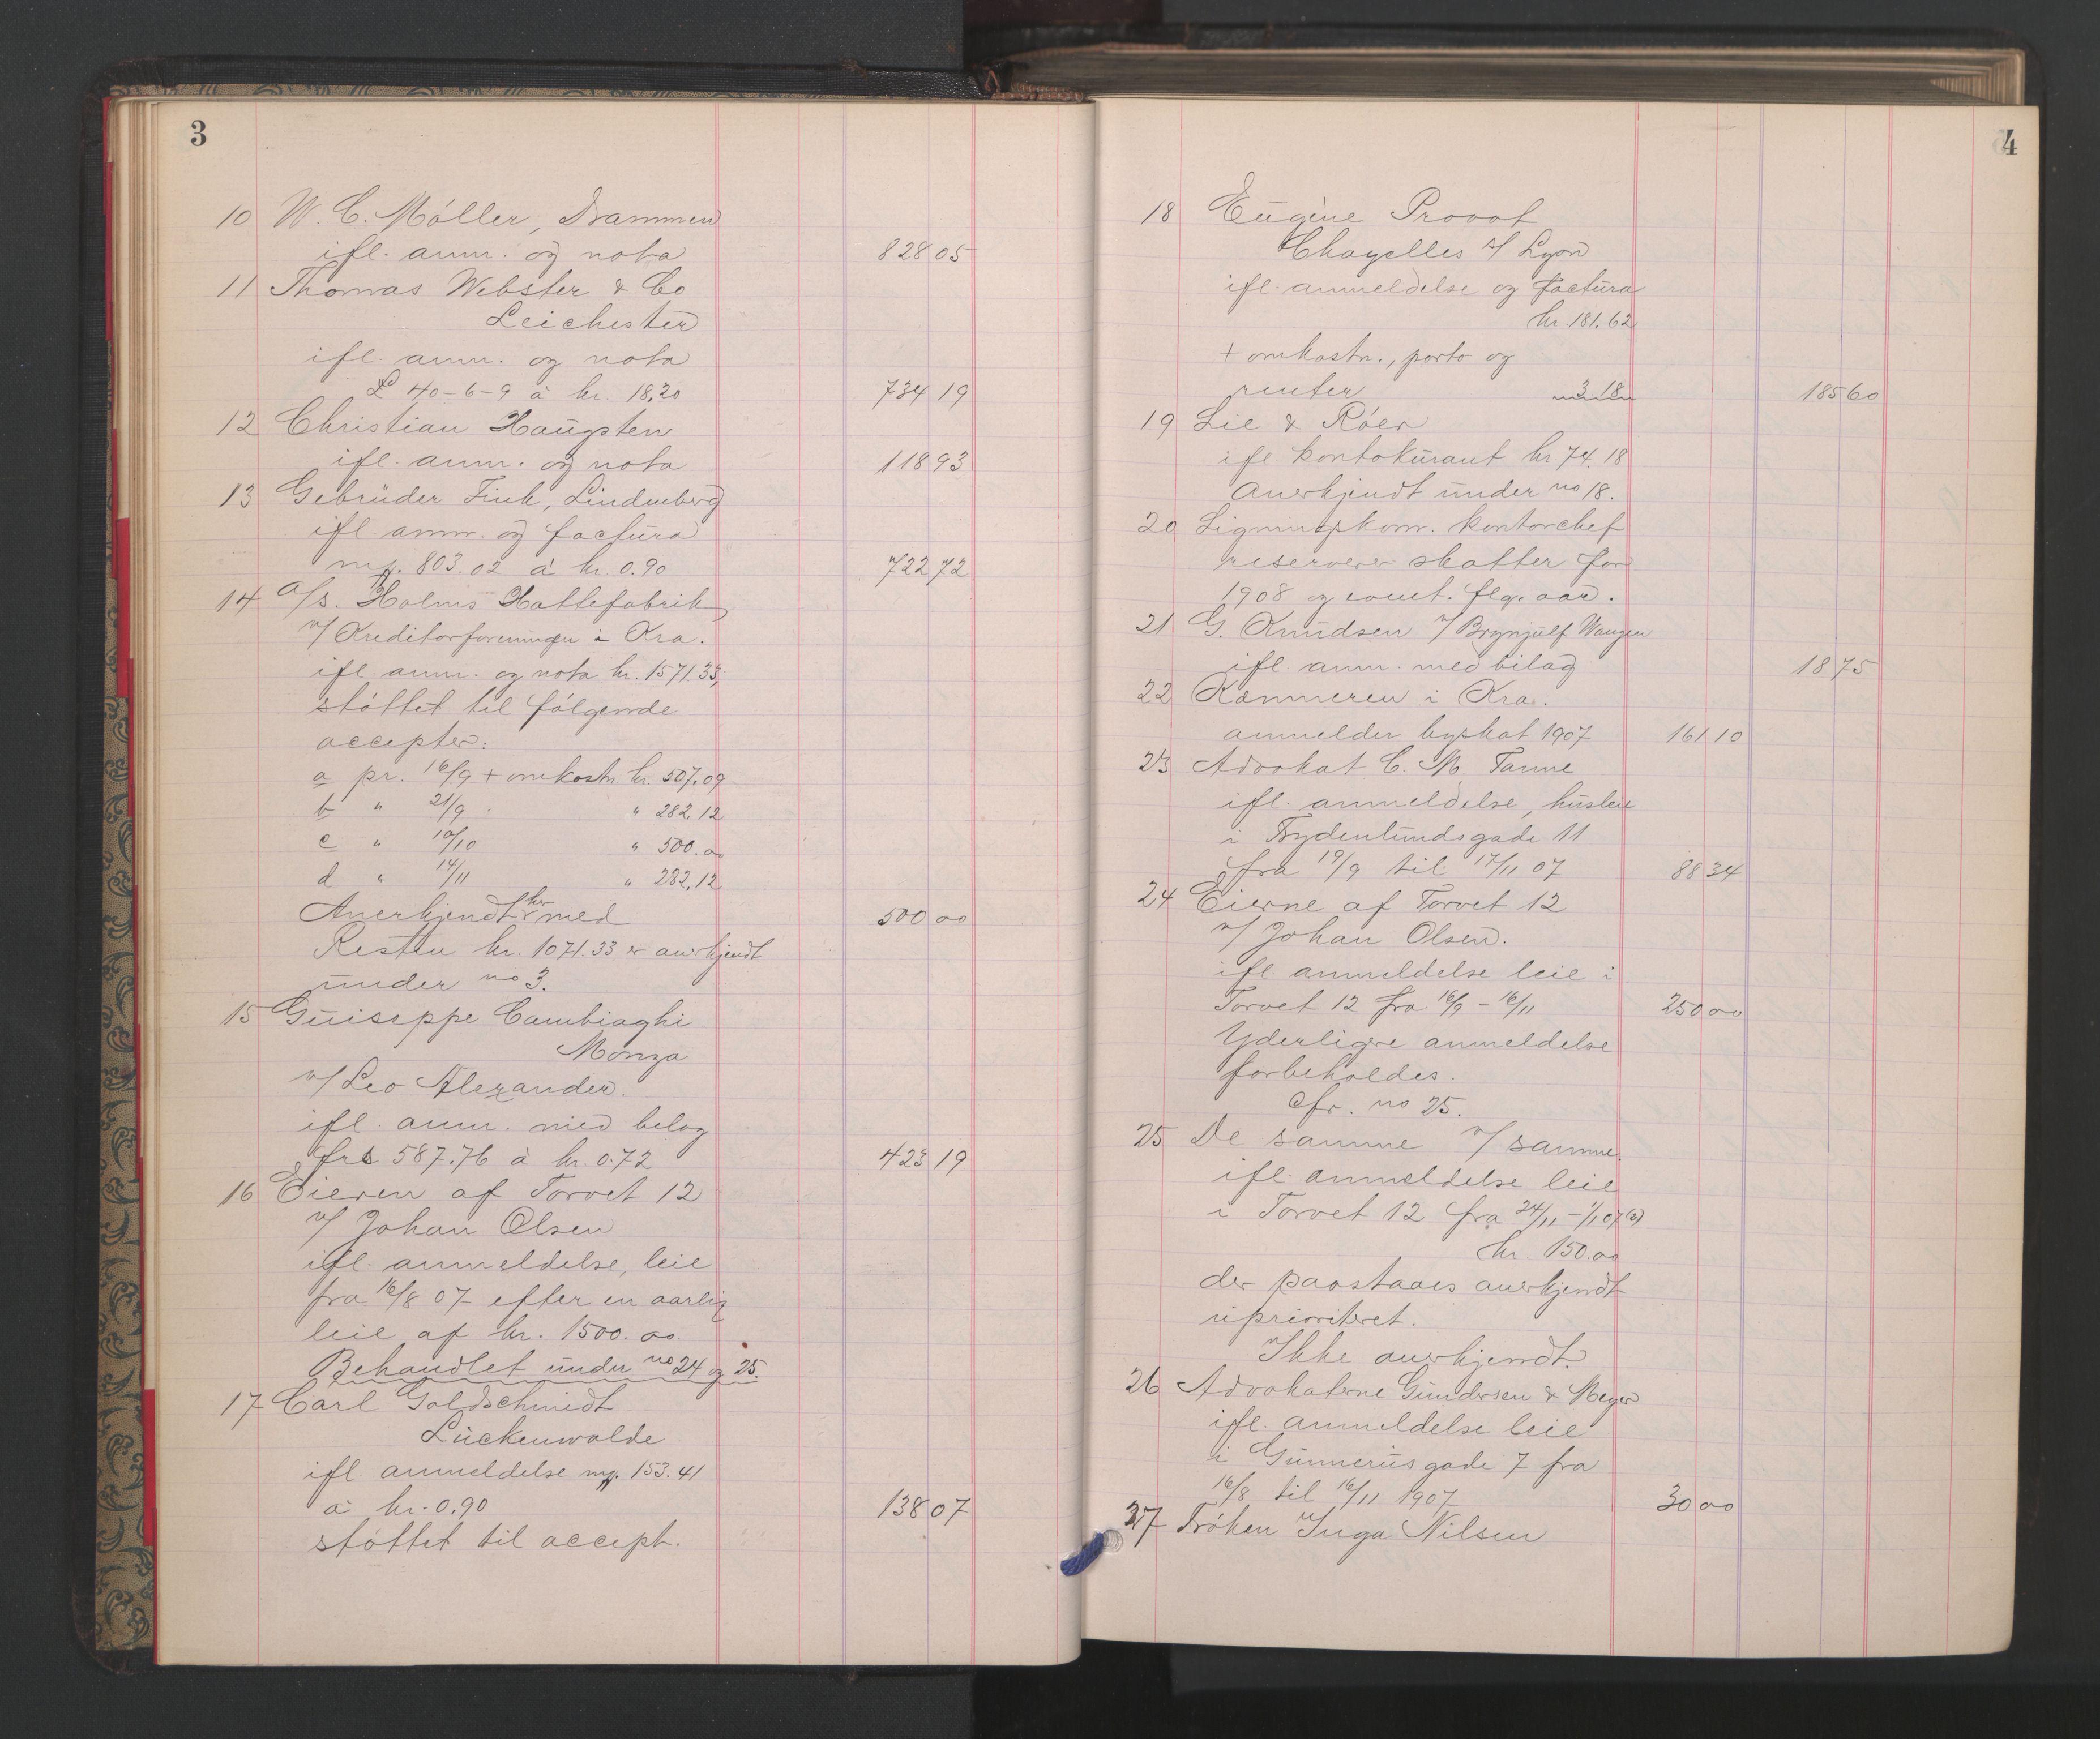 3
10 W. C. Møller, Drammen
ifl. anm. og nota 828 05
11 Thomas Webster & Co
Leichester
ifl. anm. og nota
£ 40-6-9 à kr. 18,20 734 19
12 Christian Haugsten
ifl. anm. og nota 118 93
13 Gebrüder Fink, Lindenberg
ifl. anm. og factura
mk. 803.02 à kr. 0.90 722 72
14 A/s. Holms Hattefabrik,
v/ Kreditorforeningen i Kra.
ifl. anm. og nota kr. 1571.33,
støttet til følgende
accepter:
a pr. 16/9 + omkostn. kr. 507.09
b " 21/9 " 282.12
c " 10/10 " 500.00
d " 14/11 " 282.12
Anerkjendt her med 500 00
Resten kr. 1071.33 er anerkjendt
under no 3.
15 Guiseppe Cambiaghi
Monza
v/ Leo Alexander.
ifl. anm. med belag
frs 587.76 à kr. 0.72 423 19
16 Eieren af Torvet 12
v/ Johan Olsen
ifl. anmeldelse, leie
fra 16/8 07 efter en aarlig
leie af kr. 1500.00.
Behandlet under no 24 og 25.
17 Carl Goldschmidt
Luckenwalde
ifl. anmeldelse mk. 153.41
à kr. 0.90 138 07
støttet til accept.
4
18 Eugène Provot
Chagelles s/ Lyon
ifl. anmeldelse og factura
kr. 181.62
+ omkostn., porto og
renter 3.18 185 60
19 Lie & Róer
ifl. kontokurant kr 74.18
Anerkjendt under no 18.
20 Ligningskom. kontorchef
reserverer skatter for
1908 og event. flg. aar.
21 G. Knudsen v/ Brynjulf Wangen
ifl. anm. med bilag 18 75
22 Kæmneren i Kra.
anmelder byskat 1907 161 10
23 Advokat C. M. Tanne
ifl. anmeldelse, husleie
i Frydenlundsgade 11
fra 19/9 til 17/11 07 88 34
24 Eierne af Torvet 12
v/ Johan Olsen.
ifl. anmeldelse leie i
Torvet 12 fra 16/9 - 16/11 250 00
Yderligere anmeldelse
forbeholdes.
Cfr. no 25.
25 De samme v/ samme.
ifl. anmeldelse leie
i Torvet 12 fra 24/11 - 1/1 07 (8)
kr. 150.00
der paastaaes anerkjendt
uprioritert.
Ikke anerkjendt.
26 Advokaterne Gundersen & Meyer
ifl. anmeldelse leie
i Gunnerus gade 7 fra
16/8 til 16/11 1907 30 00
27 Frøken Inga Nilsen